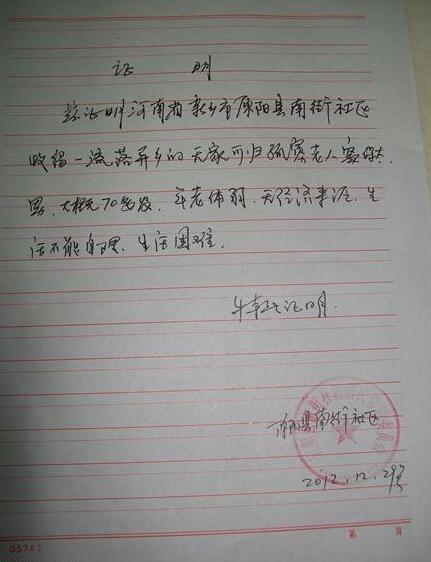 证 明
兹证明河南省新乡市原阳县南街社区
收留一流落异乡的无家可归孤寡老人
男,大概70多岁,年老体弱,无经济来源,生
活不能自理,生活困难。
特此证明.
原阳县南街社区
2012.12.29号
05741
第 页